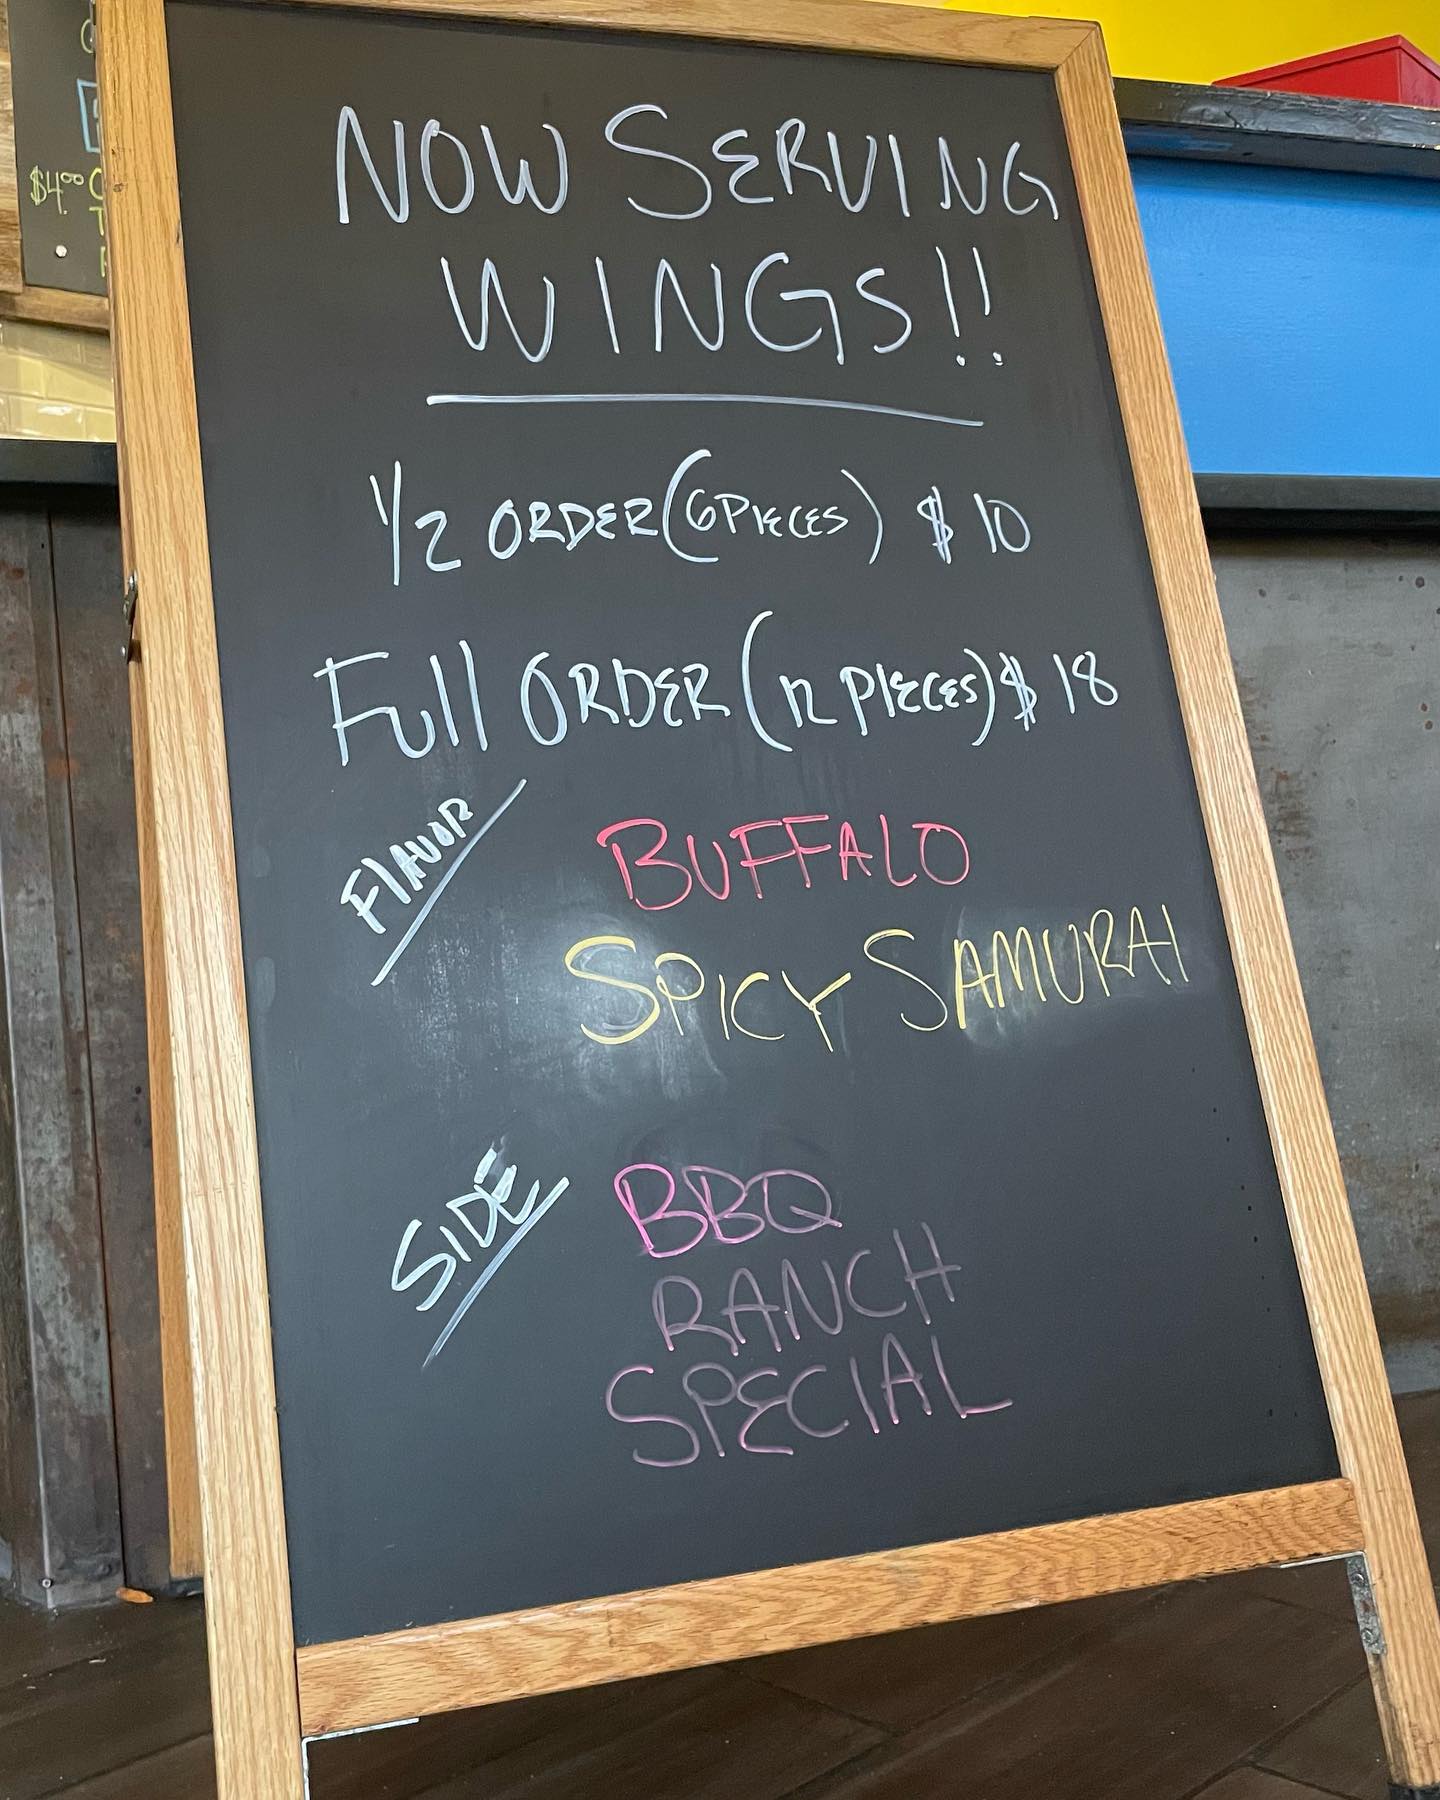 NOW SERVING
WINGS!!
1/2 ORDER (6 PIECES) $10
Full ORDER (12 PIECES) $18
FlAVOR
BUFFALO
SPICY SAMURAI
SIDE
BBQ
RANCH
SPECIAL
$4.00